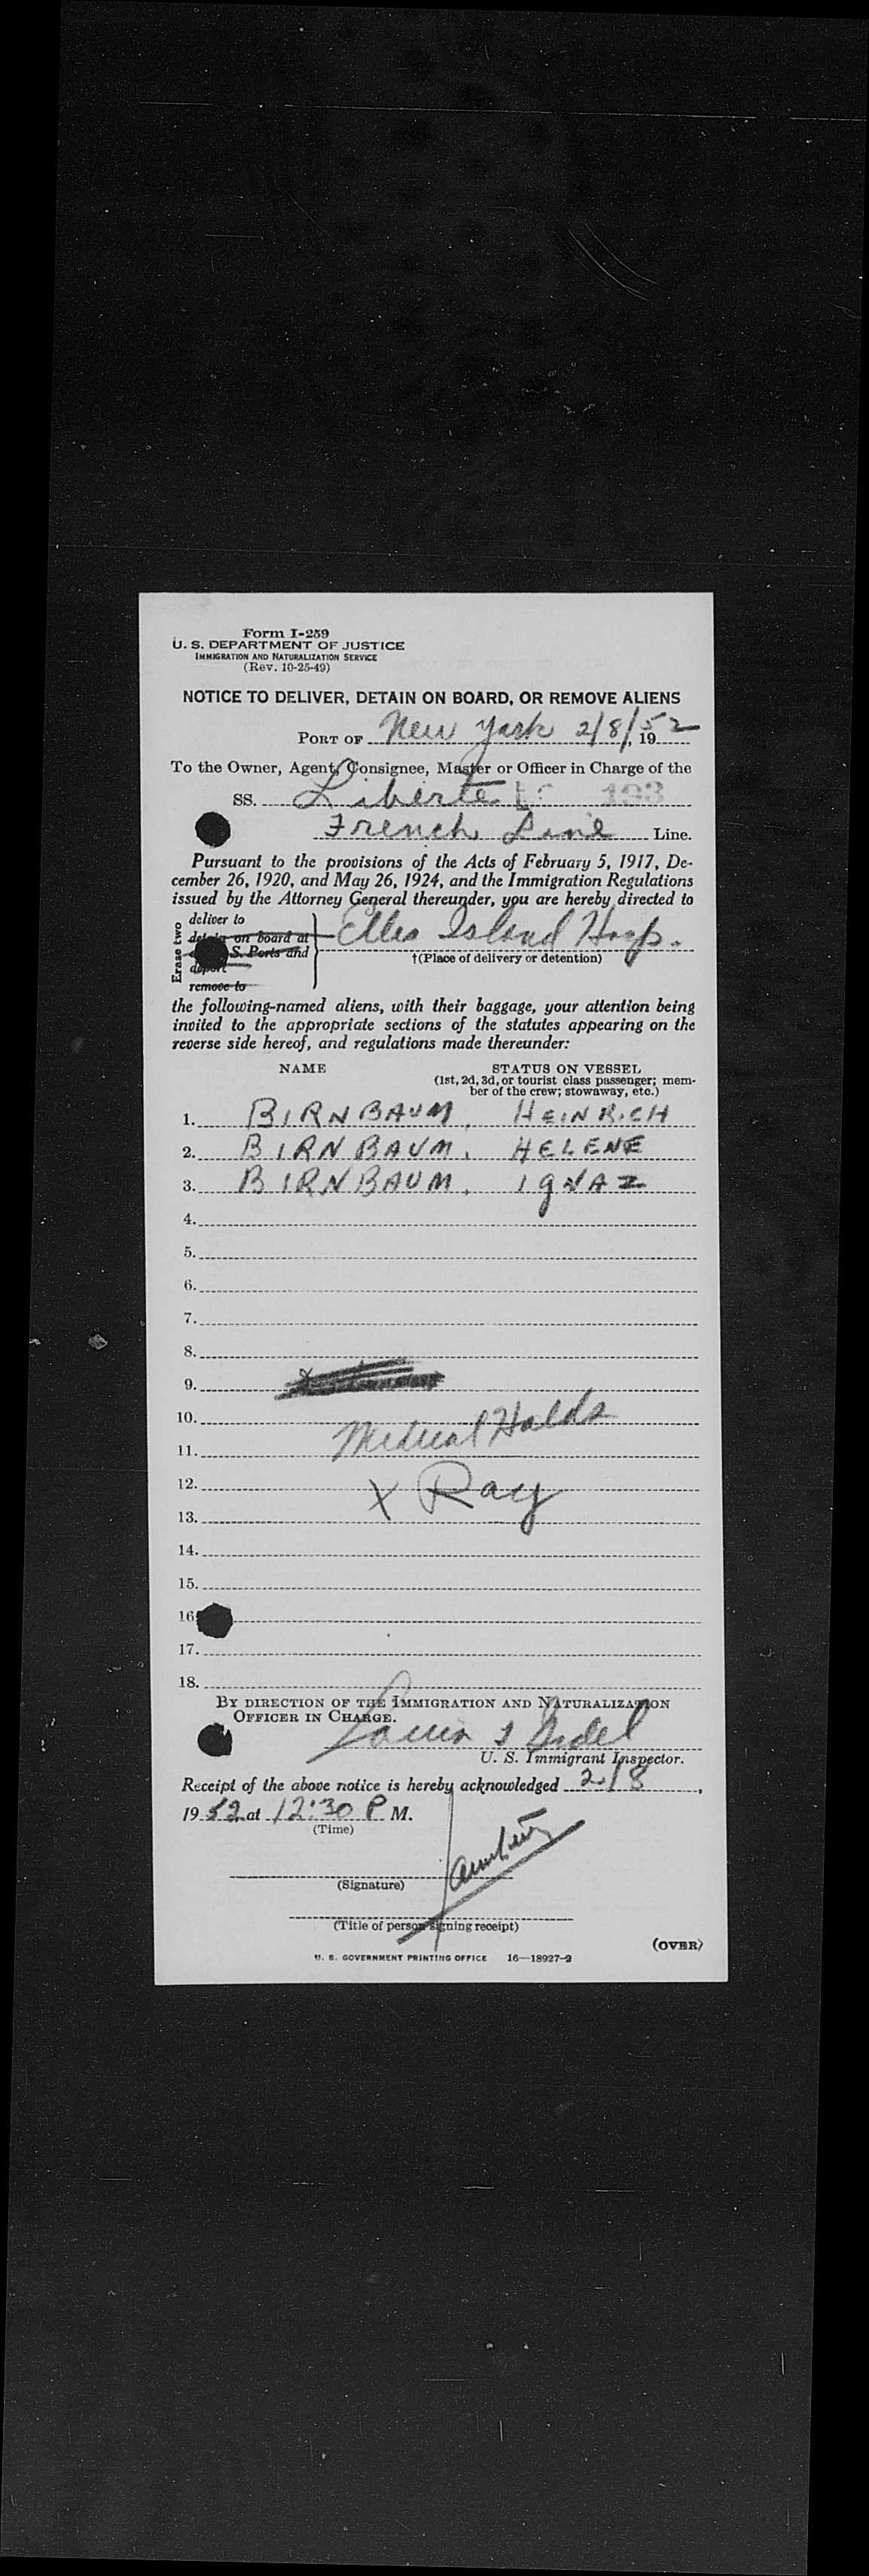 Form I-259
U. S. DEPARTMENT OF JUSTICE
IMMIGRATION AND NATURALIZATION SERVICE
(Rev. 10-25-49)
NOTICE TO DELIVER, DETAIN ON BOARD, OR REMOVE ALIENS
PORT OF New York 2/8/, 1952
To the Owner, Agent, Consignee, Master or Officer in Charge of the
SS. Liberte 193
French Line Line.
Pursuant to the provisions of the Acts of February 5, 1917, De-
cember 26, 1920, and May 26, 1924, and the Immigration Regulations
issued by the Attorney General thereunder, you are hereby directed to
Erase two
deliver to
detain on board at
S. Ports and
deport
remove to
Ellis Island Hosp.
†(Place of delivery or detention)
the following-named aliens, with their baggage, your attention being
invited to the appropriate sections of the statutes appearing on the
reverse side hereof, and regulations made thereunder:
NAME STATUS ON VESSEL
(1st, 2d, 3d, or tourist class passenger; mem-
ber of the crew; stowaway, etc.)
1. BIRNBAUM, HEINRICH
2. BIRNBAUM, HELENE
3. BIRNBAUM, IgNAZ
4.
5.
6.
7.
8.
9.
10.
Medical Holds
11.
12.
X Ray
13.
14.
15.
16
17.
18.
BY DIRECTION OF THE IMMIGRATION AND NATURALIZATION
OFFICER IN CHARGE.
U. S. Immigrant Inspector.
Receipt of the above notice is hereby acknowledged 2/8,
1952 at 12:30 P M.
(Time)
(Signature)
(Title of person signing receipt)
(OVER)
U. S. GOVERNMENT PRINTING OFFICE 16—18927-2